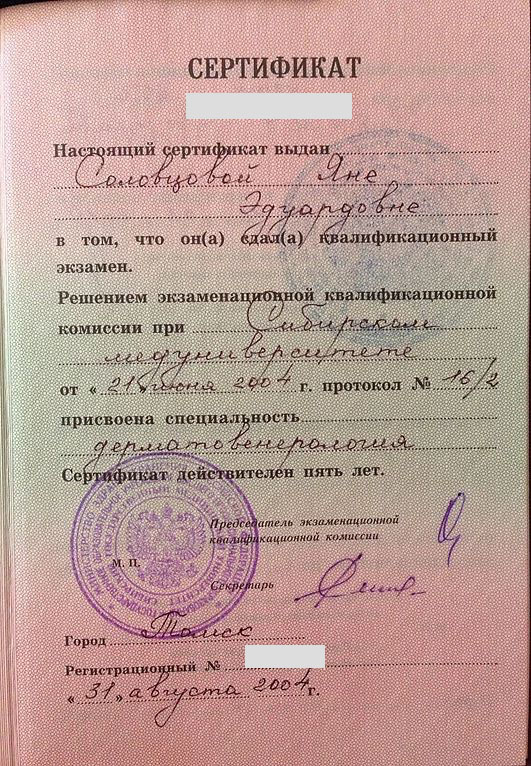 СЕРТИФИКАТ
Настоящий сертификат выдан
Соловцовой Яне
Эдуардовне
в том, что он(а) сдал(а) квалификационный
экзамен.
Решением экзаменационной квалификационной
комиссии при Сибирском
медуниверситете
от « 21 » июня 2004 г. протокол № 16/2
присвоена специальность
дерматовенерология
Сертификат действителен пять лет.
Председатель экзаменационной
квалификационной комиссии
М. П.
Секретарь
Город Томск
Регистрационный №
« 31 » августа 2004 г.